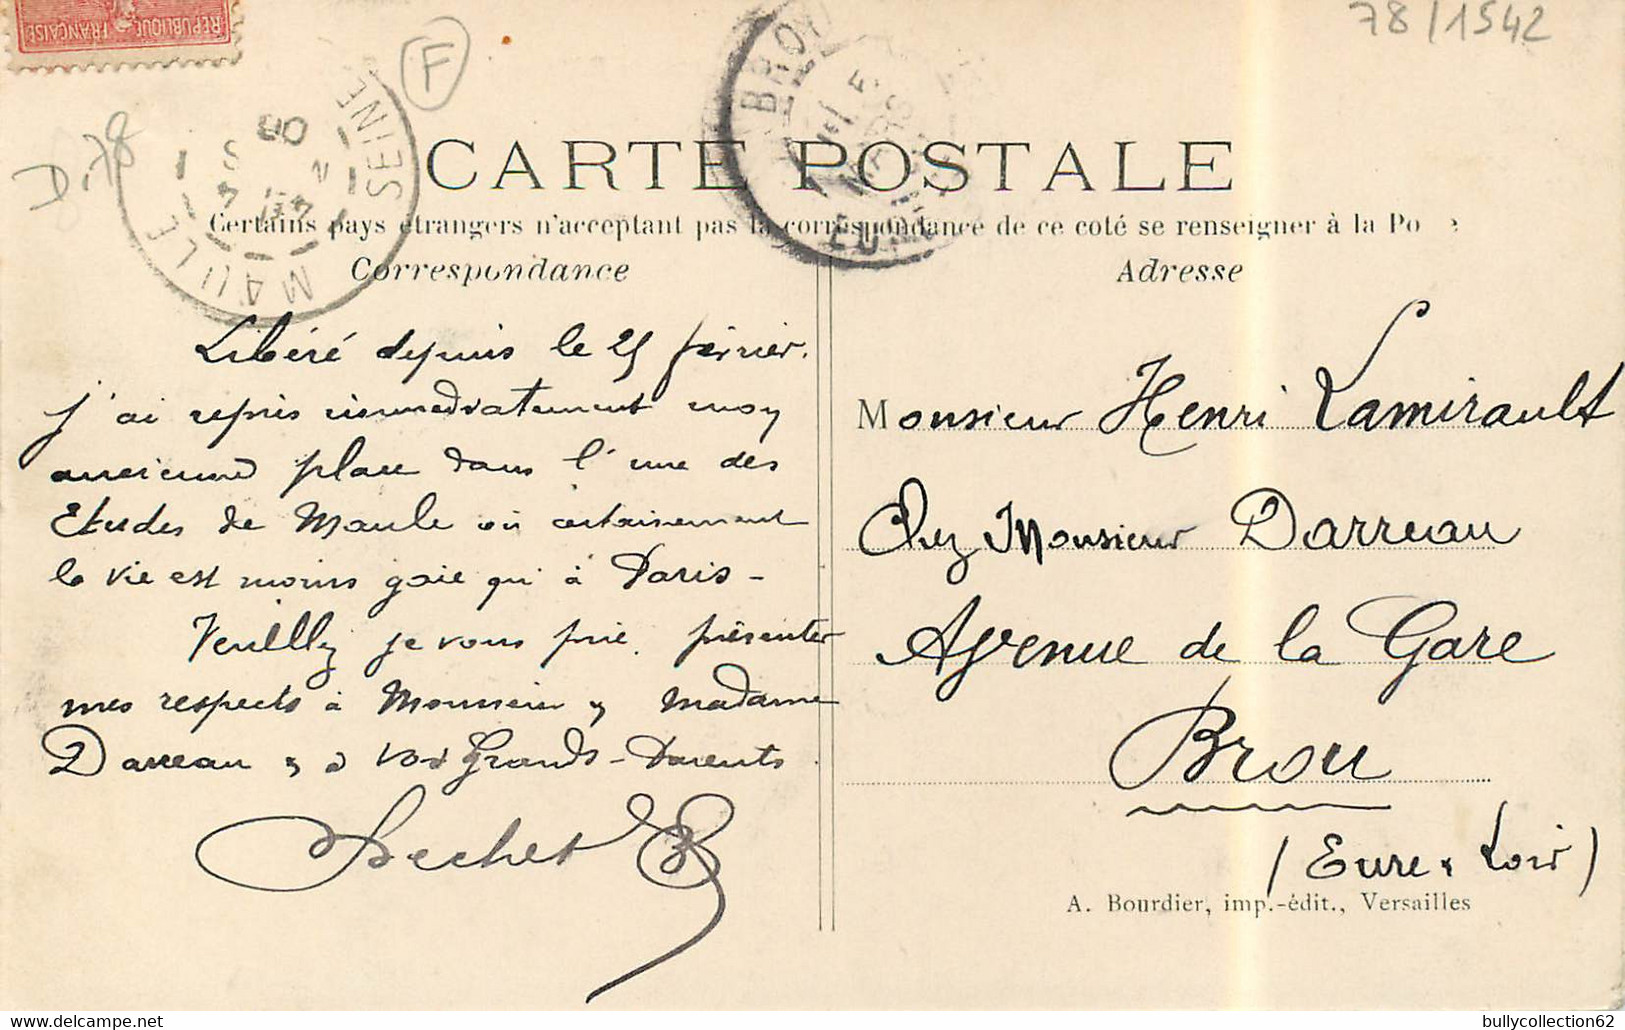 RÉPUBLIQUE FRANÇAISE
78/1542
F
D.78
SEINE
MAULE
BROU
CARTE POSTALE
Certains pays étrangers n'acceptant pas la correspondance de ce coté se renseigner à la Po
Correspondance
Adresse
Libéré depuis le 25 février.
j'ai repris immédiatement moy
ancienne place dans l'une des
Etudes de Maule où certainement
la vie est moins gaie qu'à Paris -
Veuillez je vous prie, présenter
mes respects à Monsieur & Madame
Darreau & à vos Grands-Parents
Monsieur Henri Lamirault
Chez Monsieur Darreau
Avenue de la Gare
Brou
(Eure & Loir)
A. Bourdier, imp.-édit., Versailles
bullycollection62